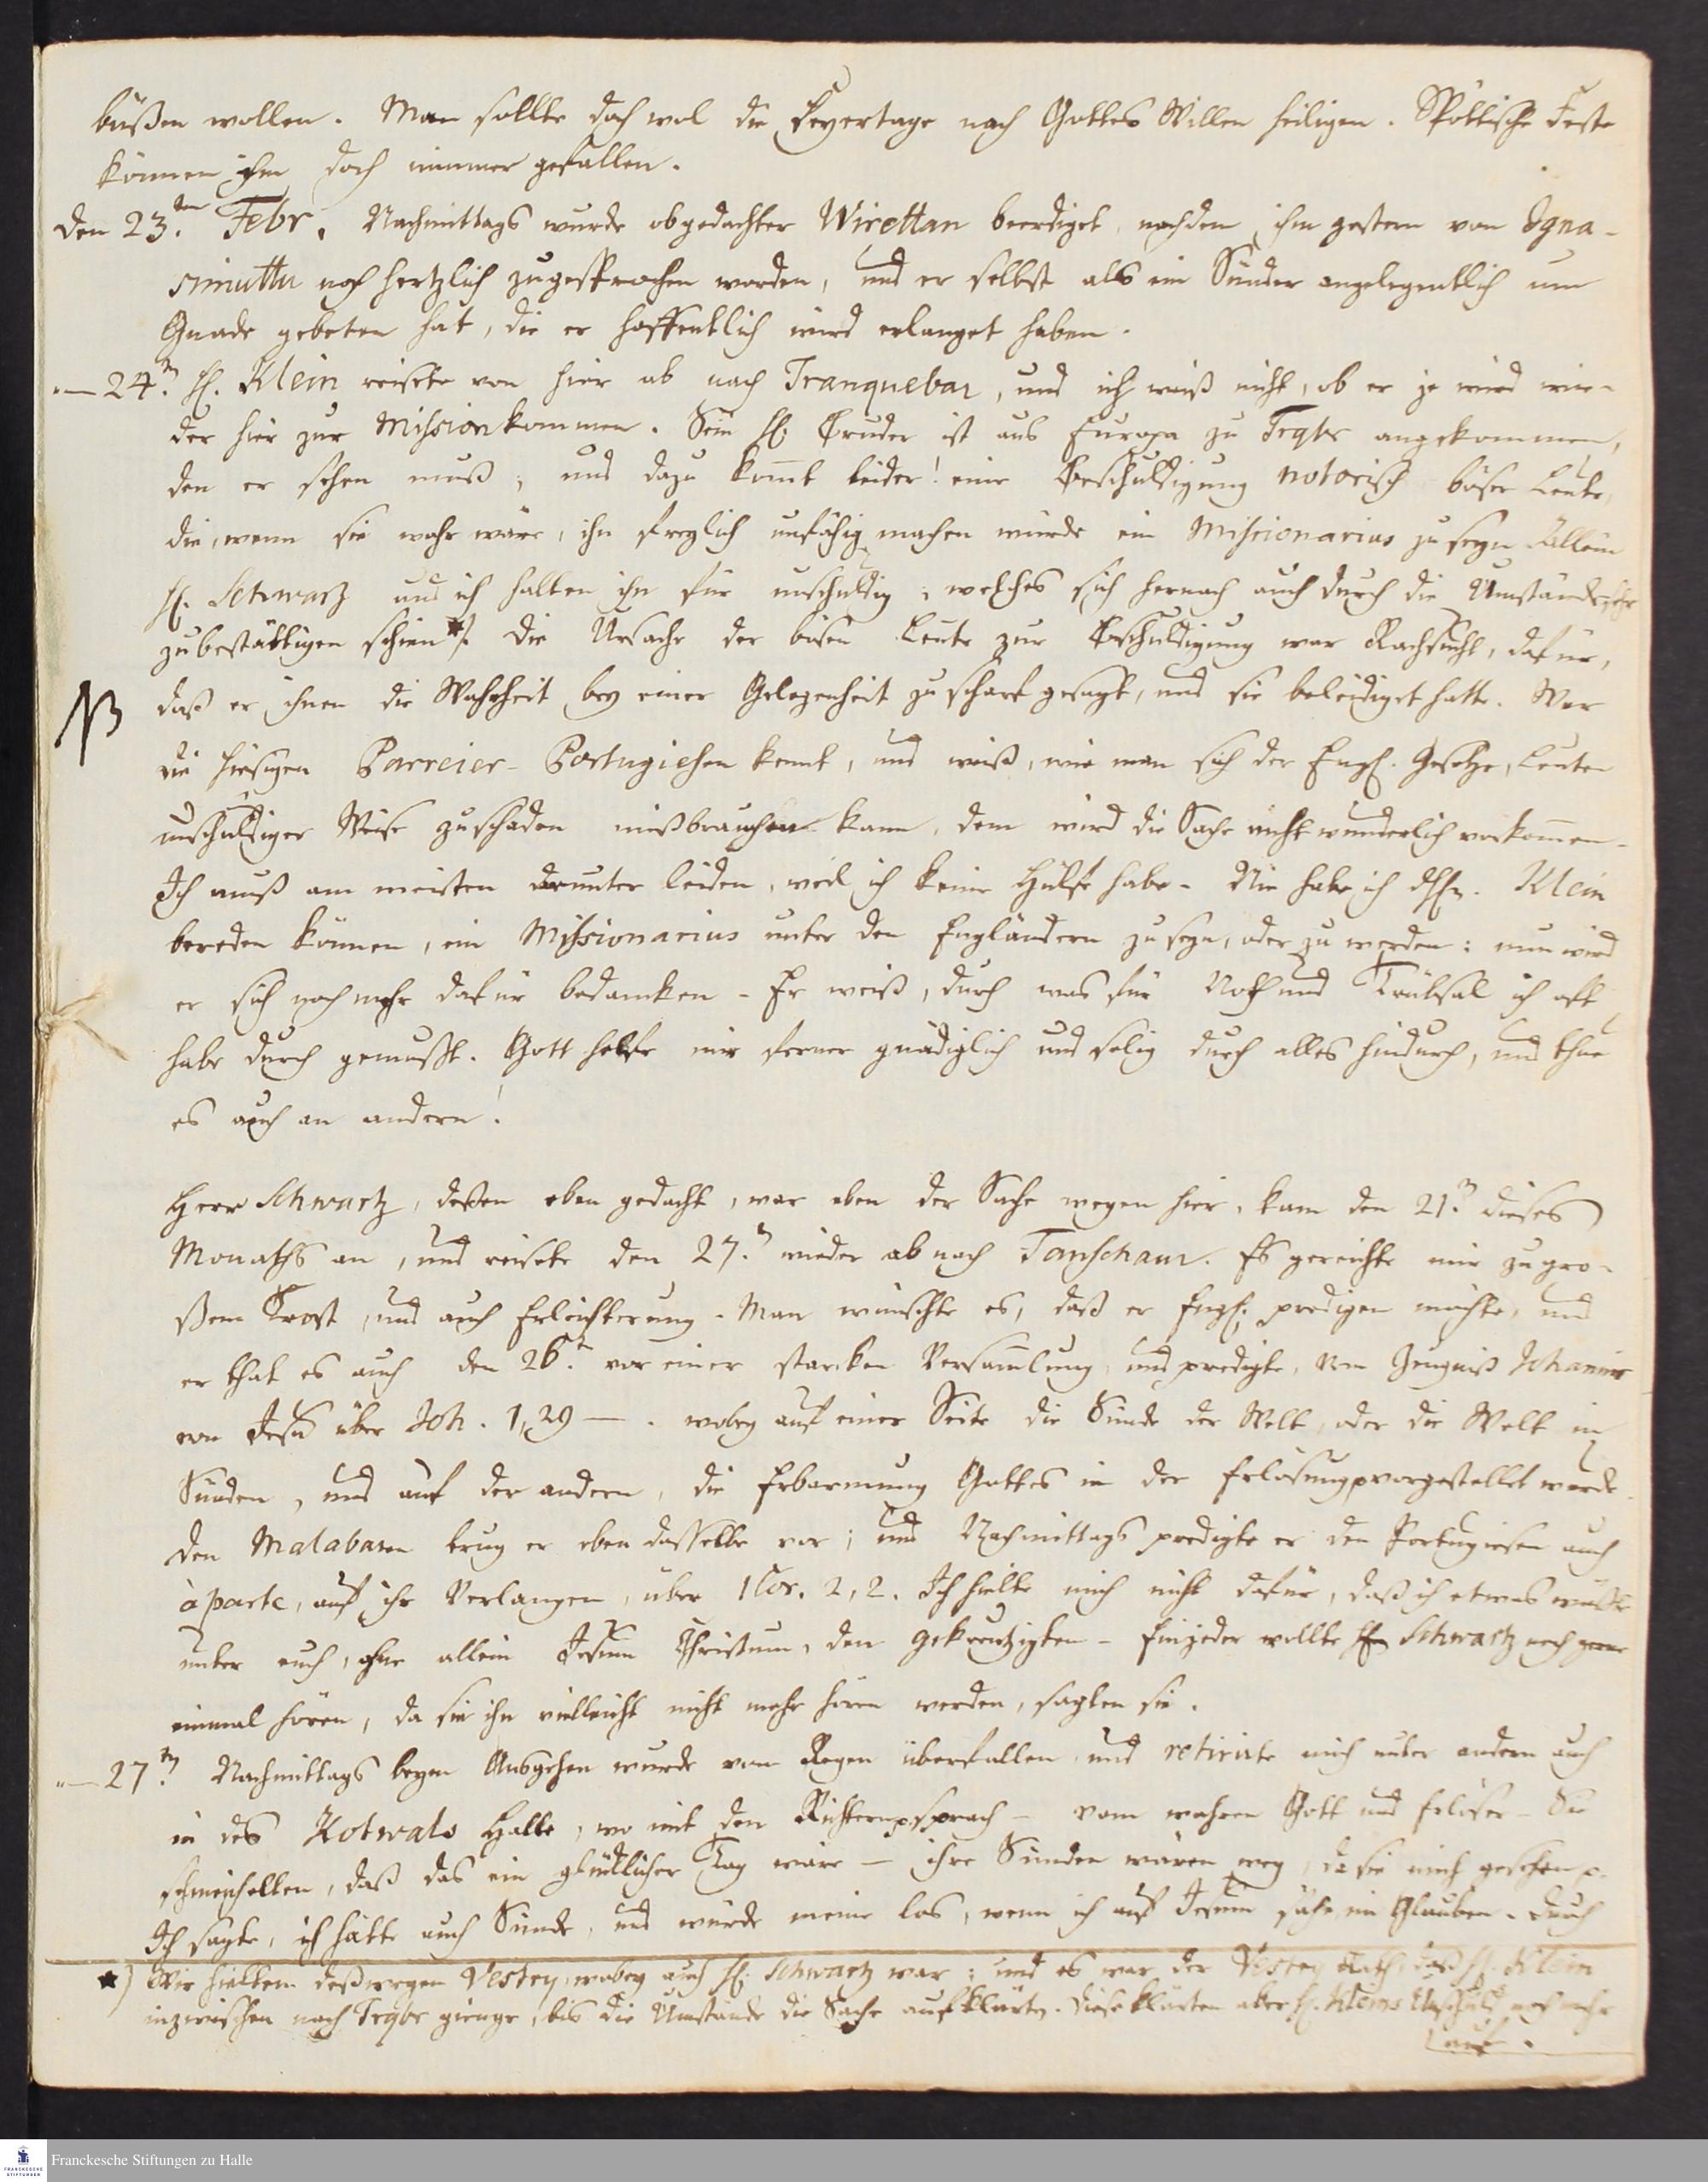 büßen wollen. Man sollte doch wol die Feyertage nach Gottes Willen heiligen. Spöttische Feste
können ihm doch nimmer gefallen.
Den 23.ten Febr. Nachmittags wurde obgedachter Wirettan beerdiget, nachdem ihm gestern von Igna-
simuttu noch hertzlich zugesprochen worden, und er selbst als ein Sünder angelegentlich um
Gnade gebeten hat, die er hoffentlich wird erlanget haben.
"— 24.n H. Klein reisete von hier ab nach Tranquebar, und ich weiß nicht, ob er je wird wie-
der hier zur Mission kommen. Sein H. Bruder ist aus Europa zu Trqbr angekommen,
den er sehen muß, und dazu komt leider! eine Beschuldigung notorisch böser Leute,
die, wenn sie wahr wäre, ihn freylich unfähig machen würde ein Missionarius zu seyn. Allein
H. Schwarz und ich halten ihn für unschuldig, welches sich hernach auch durch die Umstände sehr
zubestättigen schien *). Die Ursache der bösen Leute zur Beschuldigung war Rachsucht, dafür,
NB daß er ihnen die Wahrheit bey einer Gelegenheit zu scharf gesagt, und sie beleidiget hatte. Wer
die hiesigen Parreier-Portugiesen kennt, und weiß, wie man sich der Engl. Gesetze, Leuten
unschuldiger Weise zuschaden mißbrauchen kann, dem wird die Sache nicht wunderlich vorkommen.
Ich muß am meisten drunter leiden, weil ich keine Hülfe habe. Nie habe ich Klein
bereden können, ein Missionarius unter den Engländern zu seyn, oder zu werden: nun wird
er sich noch mehr dafür bedancken. Er weiß, durch was für Noth und Trübsal ich oft
habe durch gemußt. Gott helfe mir ferner gnädiglich und selig durch alles hindurch, und thue
es auch an andern!
Herr Schwartz, deßen eben gedacht, war eben der Sache wegen hier, kam den 21.n dieses
Monaths an, und reisete den 27.n wieder ab nach Tanschaur. Es gereichte mir zu gro-
ßem Trost, und auch Erleichterung. Man wünschte es, daß er Engl. predigen möchte, und
er that es auch den 26.n vor einer starcken Versamlung, und predigte, vom Zeugniß Johannis
von Jesu über Joh. 1, 29 —. wobey auf einer Seite die Sünde der Welt, oder die Welt in
Sünden, und auf der andern, die Erbarmung Gottes in der Erlösung vorgestellet wurde.
Den Malabaren trug er eben dasselbe vor; und Nachmittags predigte er den Portugiesen auch
à parte, auf ihr Verlangen, über 1 Cor. 2, 2. Ich hielte mich nicht dafür, daß ich etwas wüste
unter euch, ohne allein Jesum Christum, den gekreutzigten. Ein jeder wollte Hn Schwartz noch gerne
einmal hören, da sie ihn vielleicht nicht mehr hören werden, sagten sie.
"— 27.n Nachmittags beym Ausgehen wurde vom Regen überfallen und retirirte mich unter andern auch
in des Kotwals Halle, wo mit den Richtern sprach — vom wahren Gott und Erlöser. Sie
schmeichelten, daß das ein glücklicher Tag wäre — ihre Sünden wären weg, da sie mich gesehen p.
Ich sagte, ich hätte auch Sünde, und würde meine los, wenn ich auf Jesum sähe im Glauben. Durch
*) Wir hielten deßwegen Vestry, wobey auch H. Schwartz war: und es war der Vestry Rath, daß H. Klein
inzwischen nach Trqbr gienge, bis die Umstände die Sache aufklärten. Diese klärten aber H. Kleins Unschuld noch mehr
auf.
Franckesche Stiftungen zu Halle